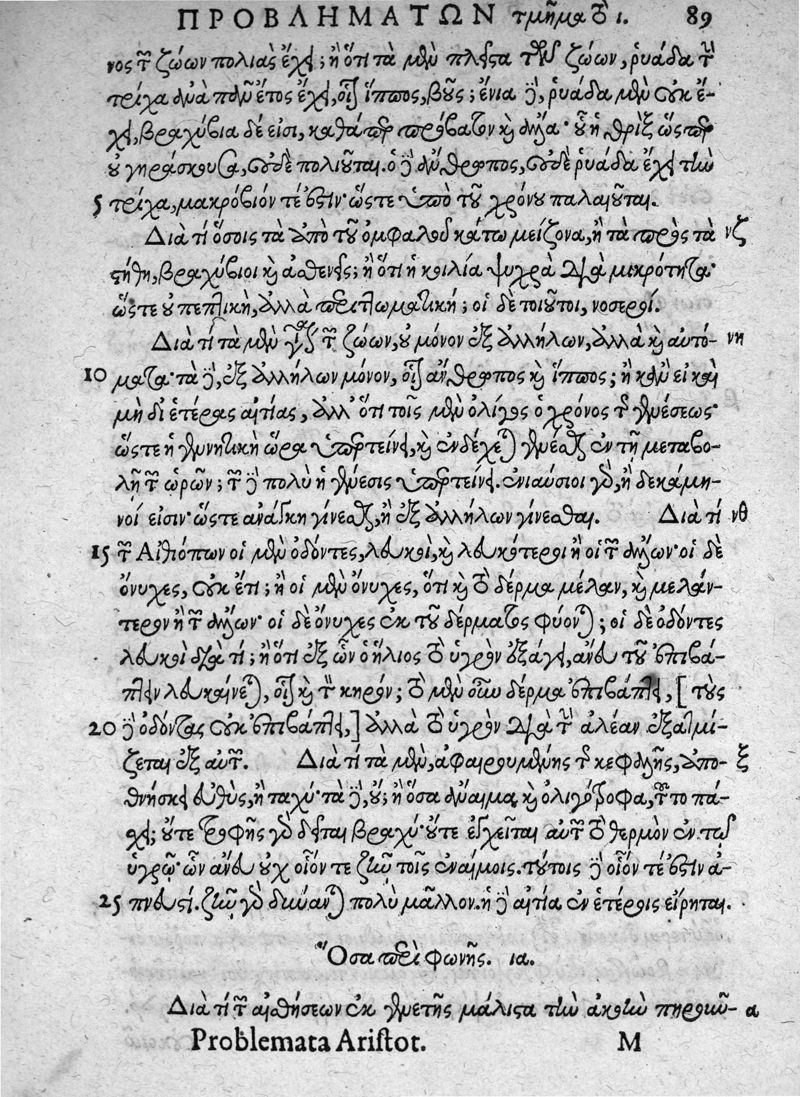 ΠΡΟΒΛΗΜΑΤΩΝ τμῆμα τὸ ι. 89
νος τῶν ζώων πολιὰς ἔχει; ἢ ὅτι τὰ μὲν πλεῖστα τῶν ζώων, ῥυάδα τὴν
τρίχα ἀνὰ πᾶν ἔτος ἔχει, οἷον ἵππος, βοῦς; ἔνια δὲ, ῥυάδα μὲν οὐκ ἔ-
χει, βραχύβια δέ εἰσι, καθάπερ πρόβατον καὶ ἄλλα· οὗ ἡ θρὶξ ὥσπερ
οὐ γηράσκουσα, οὐδὲ πολιοῦται. ὁ δὲ ἄνθρωπος, οὐδὲ ῥυάδα ἔχει τὴν
5 τρίχα, μακρόβιόν τέ ἐστιν· ὥστε ὑπὸ τοῦ χρόνου παλαιοῦται.
Διὰ τί ὅσοις τὰ ἀπὸ τοῦ ὀμφαλοῦ κάτω μείζονα, ἢ τὰ πρὸς τὰ νζ
στήθη, βραχύβιοι καὶ ἀσθενεῖς; ἢ ὅτι ἡ κοιλία ψυχρὰ διὰ μικρότητα·
ὥστε οὐ πεπτικὴ, ἀλλὰ περιττωματική; οἱ δὲ τοιοῦτοι, νοσεροί.
Διὰ τί τὰ μὲν γίνεται τῶν ζώων, οὐ μόνον ἐξ ἀλλήλων, ἀλλὰ καὶ αὐτό- νη
10 ματα· τὰ δὲ, ἐξ ἀλλήλων μόνον, οἷον ἄνθρωπος καὶ ἵππος; ἢ κἂν εἰ καὶ
μὴ δι' ἑτέρας αἰτίας, ἀλλ' ὅτι τοῖς μὲν ὀλίγος ὁ χρόνος τῆς γενέσεως·
ὥστε ἡ γεννητικὴ ὥρα ὑπερτείνει, καὶ ἐνδέχεται γενέσθαι ἐν τῇ μεταβο-
λῇ τῶν ὡρῶν; τῶν δὲ πολὺ ἡ γένεσις ὑπερτείνει. ἐνιαύσιοι γὰρ, ἢ δεκάμη-
νοί εἰσιν· ὥστε ἀνάγκη γίνεσθαι, ἢ ἐξ ἀλλήλων γίνεσθαι. Διὰ τί νθ
15 τῶν Αἰθιόπων οἱ μὲν ὀδόντες, λευκοὶ, καὶ λευκότεροι ἢ οἱ τῶν ἄλλων· οἱ δὲ
ὄνυχες, οὐκ ἔτι; ἢ οἱ μὲν ὄνυχες, ὅτι καὶ τὸ δέρμα μέλαν, καὶ μελάν-
τερον ἢ τῶν ἄλλων· οἱ δὲ ὄνυχες ἐκ τοῦ δέρματος φύονται; οἱ δὲ ὀδόντες
λευκοὶ διὰ τί; ἢ ὅτι ἐξ ὧν ὁ ἥλιος τὸ ὑγρὸν ἐξάγει, ἄνευ τοῦ ἐπιβά-
πτειν λευκαίνεται, οἷον καὶ τὸν κηρόν; τὸ μὲν οὖν δέρμα ἐπιβάπτει, [τοὺς
20 δὲ ὀδόντας οὐκ ἐπιβάπτει,] ἀλλὰ τὸ ὑγρὸν διὰ τὴν ἀλέαν ἐξατμί-
ζεται ἐξ αὐτῶν. Διὰ τί τὰ μὲν, ἀφαιρουμένης τῆς κεφαλῆς, ἀπο- ξ
θνήσκει εὐθὺς, ἢ ταχύ· τὰ δὲ, οὔ; ἢ ὅσα ἄναιμα καὶ ὀλιγότροφα, τοῦτο πά-
χει; οὔτε τροφῆς γὰρ δεῖται βραχύ· οὔτε ἐγχεῖται αὐτῶν τὸ θερμὸν ἐν τῷ
ὑγρῷ· ὧν ἄνευ οὐχ οἷόν τε ζῆν τοῖς ἐναίμοις. τούτοις δὲ οἷόν τέ ἐστιν ἀ-
25 πνευστί. ζῆν γὰρ δύναται πολὺ μᾶλλον. ἡ δὲ αἰτία ἐν ἑτέροις εἴρηται.
Ὅσα περὶ φωνῆς. ια.
Διὰ τί τῶν αἰσθήσεων ἐκ γενετῆς μάλιστα τὴν ἀκοὴν πηροῦν- α
Problemata Aristot. M